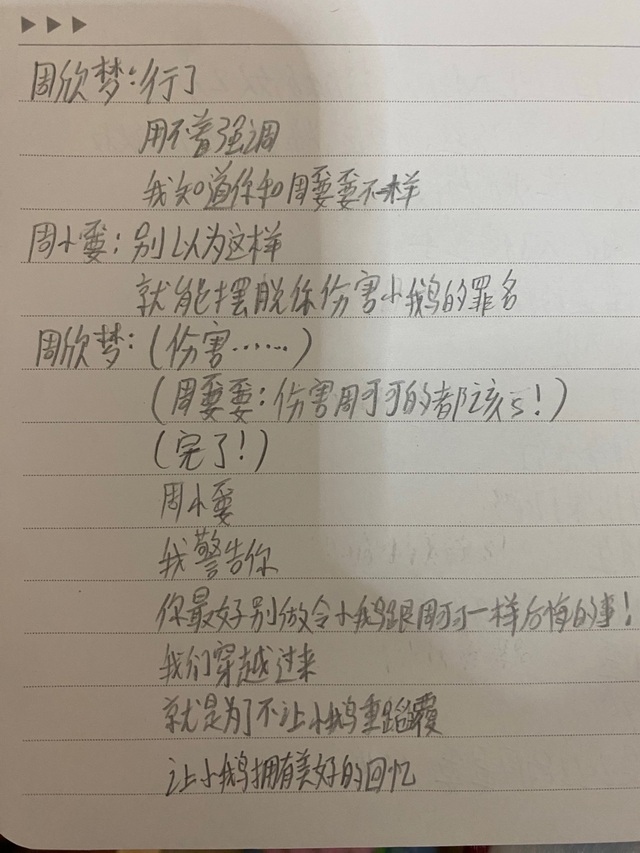 周欣梦:行了
用不着强调
我知道你和周耍耍不一样
周小耍:别以为这样
就能摆脱你伤害小鹅的罪名
周欣梦:(伤害……)
(周耍耍:伤害周可可的都该s!)
(完了!)
周小耍
我警告你
你最好别做令小鹅跟周可可一样后悔的事!
我们穿越过来
就是为了不让小鹅重蹈覆
让小鹅拥有美好的回忆